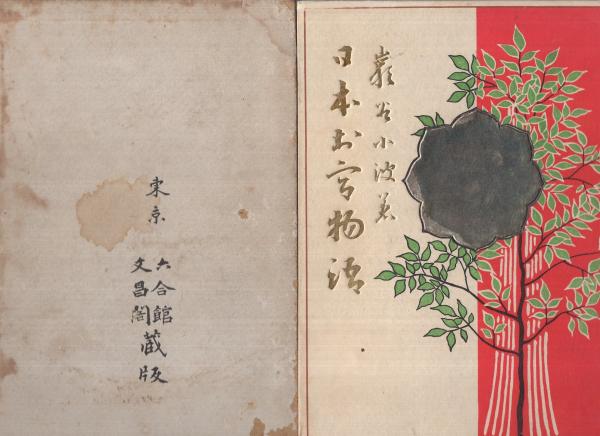 巌谷小波著
日本お宮物語
東京
六合館
文昌閣
蔵版